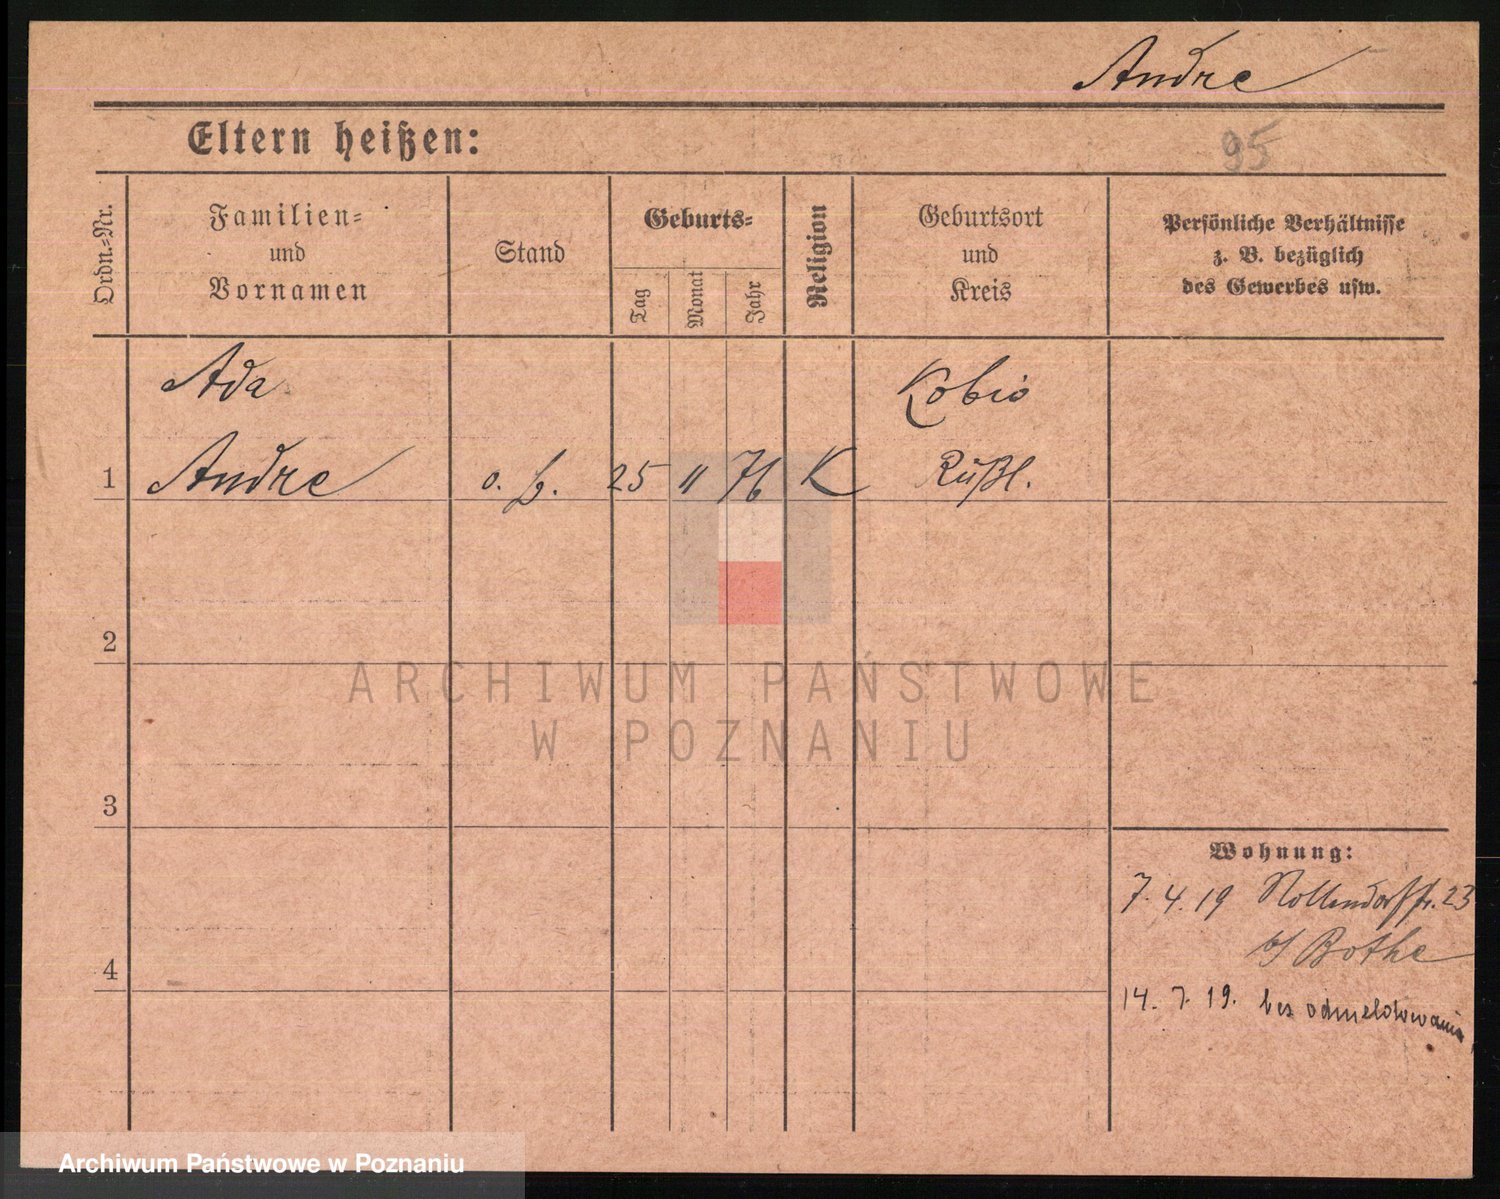 Andre
Eltern heißen:
95
Ordn.=Nr.
Familien=
und
Vornamen
Stand
Geburts=
Tag
Monat
Jahr
Religion
Geburtsort
und
Kreis
Persönliche Verhältnisse
z. B. bezüglich
des Gewerbes usw.
Ada
Kobio
1 Andre o. b. 25 11 76 K Rußl.
2
ARCHIWUM PAŃSTWOWE
W POZNANIU
3
Wohnung:
7. 4. 19 Nollendorfstr. 23
b/ Bothe
4
14. 7. 19. bez odmeldowania
Archiwum Państwowe w Poznaniu